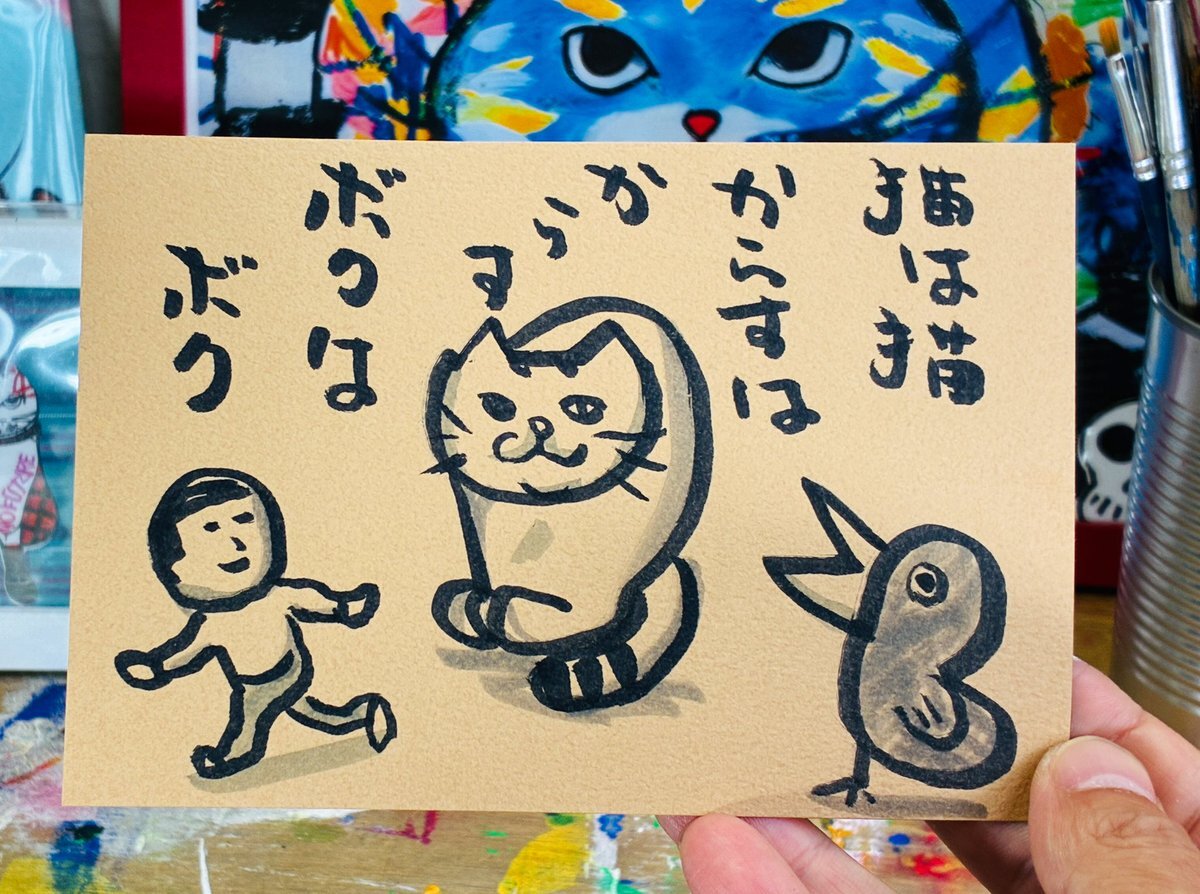 猫は猫
からすは
からす
ボクは
ボク
NOFUTAPE